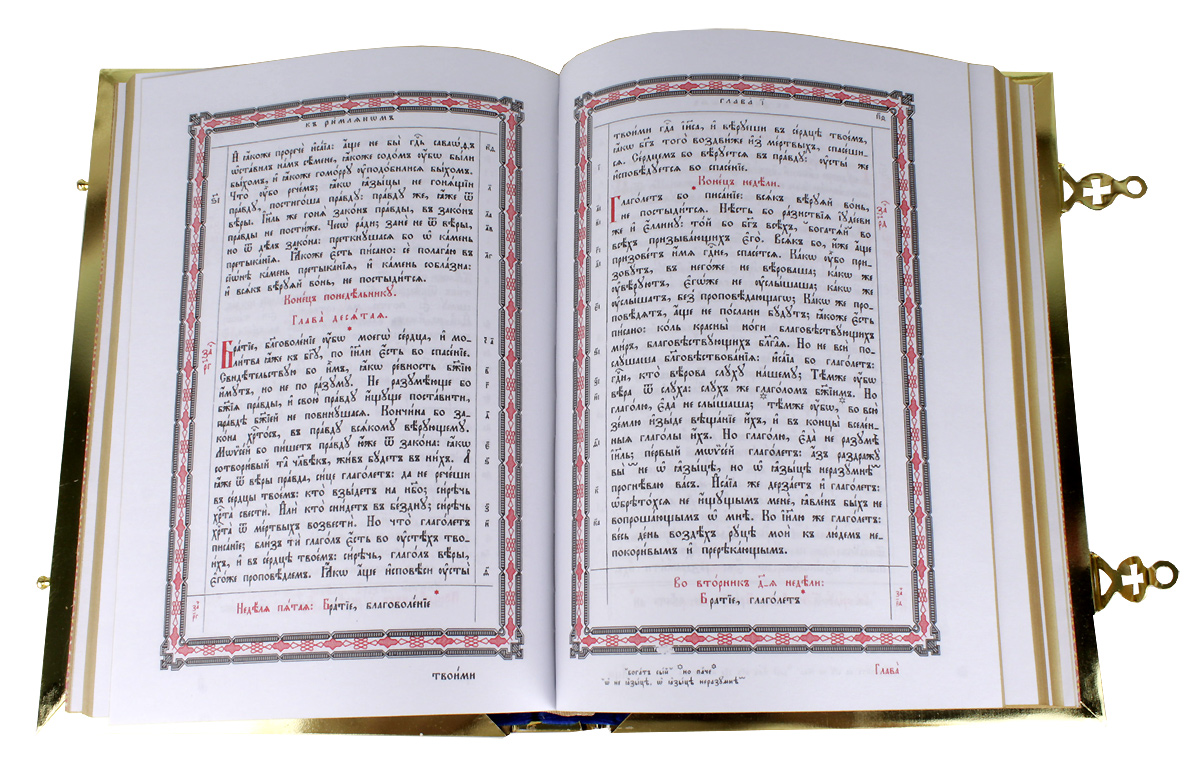 къ римлѧнѡмъ
И҆ ꙗ҆́коже проречѐ и҆са́їа: а҆́ще не бы̀ гд҇ь саваѡ́ѳъ
ѡ҆ста́вилъ на́мъ сѣ́мене, ꙗ҆́коже содо́мъ ᲂу҆́бѡ бы́ли
бы́хомъ, и҆ ꙗ҆́коже гомо́ррꙋ ᲂу҆подо́билисѧ бы́хомъ.
Что̀ ᲂу҆̀бо рече́мъ; ꙗ҆́кѡ ꙗ҆зы́цы не гонѧ́щїи
пра́вдꙋ, пости́гоша пра́вдꙋ: пра́вдꙋ же, ꙗ҆́же ѿ
вѣ́ры. І҆и҃ль же гонѧ̀ зако́нъ пра́вды, въ зако́нъ
пра́вды не пости́же. Чесѡ̀ ра́ди; занѐ не ѿ вѣ́ры,
но ѿ дѣ́лъ зако́на: преткнꙋ́шасѧ бо ѡ҆ ка́мень
претыка́нїѧ. Ꙗ҆́коже є҆́сть пи́сано: сѐ полага́ю въ
сїѡ́нѣ ка́мень претыка́нїѧ, и҆ ка́мень собла́зна:
и҆ всѧ́къ вѣ́рꙋѧй во́нь, не постыди́тсѧ.
Коне́цъ понедѣ́льникꙋ.
Глава̀ десѧ́таѧ.
Бра́тїе, бл҃говоле́нїе ᲂу҆́бѡ моегѡ̀ се́рдца, и҆ мо-
ли́тва ꙗ҆́же къ бг҃ꙋ, по і҆и҃ли є҆́сть во спасе́нїе.
Свидѣ́тельствꙋю бо и҆̀мъ, ꙗ҆́кѡ ре́вность бж҃їю
и҆́мꙋтъ, но не по ра́зꙋмꙋ. Не разꙋмѣ́юще бо
бж҃їѧ пра́вды, и҆ свою̀ пра́вдꙋ и҆́щꙋще поста́вити,
пра́вдѣ бж҃їей не повинꙋ́шасѧ. Кончи́на бо за-
ко́на хрⷭ҇то́съ, въ пра́вдꙋ всѧ́комꙋ вѣ́рꙋющемꙋ.
Мѡѷсе́й бо пи́шетъ пра́вдꙋ ю҆́же ѿ зако́на: ꙗ҆́кѡ
сотвори́вый та̑ чл҃вѣ́къ, жи́въ бꙋ́детъ въ ни́хъ. А҆
ꙗ҆́же ѿ вѣ́ры пра́вда, си́це глаго́летъ: да не рече́ши
въ се́рдцы твое́мъ: кто̀ взы́детъ на нб҃о; си́рѣчь
хрⷭ҇та̀ свестѝ. И҆лѝ кто̀ сни́детъ въ бе́зднꙋ; си́рѣчь
хрⷭ҇та̀ ѿ ме́ртвыхъ возвестѝ. Но что̀ глаго́летъ
писа́нїе; бли́зъ тѝ глаго́лъ є҆́сть во ᲂу҆стѣ́хъ тво-
и́хъ, и҆ въ се́рдцѣ твое́мъ: си́рѣчь, глаго́лъ вѣ́ры,
є҆го́же проповѣ́даемъ. Ꙗ҆́кѡ а҆́ще и҆сповѣ́си ᲂу҆сты̀
Недѣ́лѧ пѧ́таѧ: Бра́тїе, благоволе́нїе*
твои́ми
глава̀ і҃
твои́ми гдⷭ҇а і҆и҃са, и҆ вѣ́рꙋеши въ се́рдцѣ твое́мъ,
ꙗ҆́кѡ бг҃ъ того̀ воздви́же и҆з̾ ме́ртвыхъ, спасе́ши-
сѧ. Се́рдцемъ бо вѣ́рꙋетсѧ въ пра́вдꙋ: ᲂу҆сты́ же
и҆сповѣ́дꙋетсѧ во спасе́нїе.
Коне́цъ недѣ́ли.
Глаго́летъ бо* писа́нїе: всѧ́къ вѣ́рꙋѧй во́нь,
не постыди́тсѧ. Нѣ́сть бо ра́знствїѧ і҆ꙋде́еви
же и҆ є҆́ллинꙋ: то́й бо бг҃ъ всѣ́хъ, богатѧ́й во
всѣ́хъ призыва́ющихъ є҆го̀. Всѧ́къ бо, и҆́же а҆́ще
призове́тъ и҆́мѧ гдⷭ҇не, спасе́тсѧ. Ка́кѡ ᲂу҆̀бо при-
зовꙋ́тъ, въ него́же не вѣ́роваша; ка́кѡ же
ᲂу҆вѣ́рꙋютъ, є҆гѡ́же не ᲂу҆слы́шаша; ка́кѡ же
ᲂу҆слы́шатъ, без̾ проповѣ́дающагѡ; Ка́кѡ же про-
повѣ́дѧтъ, а҆́ще не по́слани бꙋ́дꙋтъ; ꙗ҆́коже є҆́сть
пи́сано: ко́ль красны̀ но́ги благовѣствꙋ́ющихъ
ми́ръ, благовѣствꙋ́ющихъ бл҃га̑ѧ. Но не всѝ по-
слꙋ́шаша бл҃говѣствова́нїѧ: и҆са́їа бо глаго́летъ:
гдⷭ҇и, кто̀ вѣ́рова слꙋ́хꙋ на́шемꙋ; Тѣ́мже ᲂу҆́бѡ
вѣ́ра ѿ слꙋ́ха: слꙋ́хъ же глаго́ломъ бж҃їимъ. Но
глаго́лю, є҆да̀ не слы́шаша; тѣ́мже ᲂу҆́бѡ, во всю̀
зе́млю и҆зы́де вѣща́нїе и҆́хъ, и҆ въ концы̀ вселе́н-
ныѧ глаго́лы и҆́хъ. Но глаго́лю, є҆да̀ не разꙋмѣ̀
і҆и҃ль; пе́рвый мѡѷсе́й глаго́летъ: а҆́зъ раздражꙋ̀
вы̀ не ѡ҆ ꙗ҆зы́цѣ, но ѡ҆ ꙗ҆зы́цѣ неразꙋ́мнѣ
прогнѣ́ваю ва́съ. И҆са́їа же дерза́етъ и҆ глаго́летъ:
ѡ҆брѣто́хсѧ не и҆́щꙋщымъ менѐ, ꙗ҆вле́нъ бы́хъ не
вопроша́ющымъ ѡ҆ мнѣ̀. Ко і҆и҃лю же глаго́летъ:
ве́сь де́нь воздѣ́хъ рꙋ́цѣ моѝ къ лю́демъ не-
покори́вымъ и҆ прерѣка́ющымъ.
Во вто́рникъ д҃-ѧ недѣ́ли:
Бра́тїе, глаго́летъ*
бога́тъ сы́й но па́че
ѡ҆ не ꙗ҆зы́цѣ, ѡ҆ ꙗ҆зы́цѣ неразꙋ́мнѣ
Глава̀